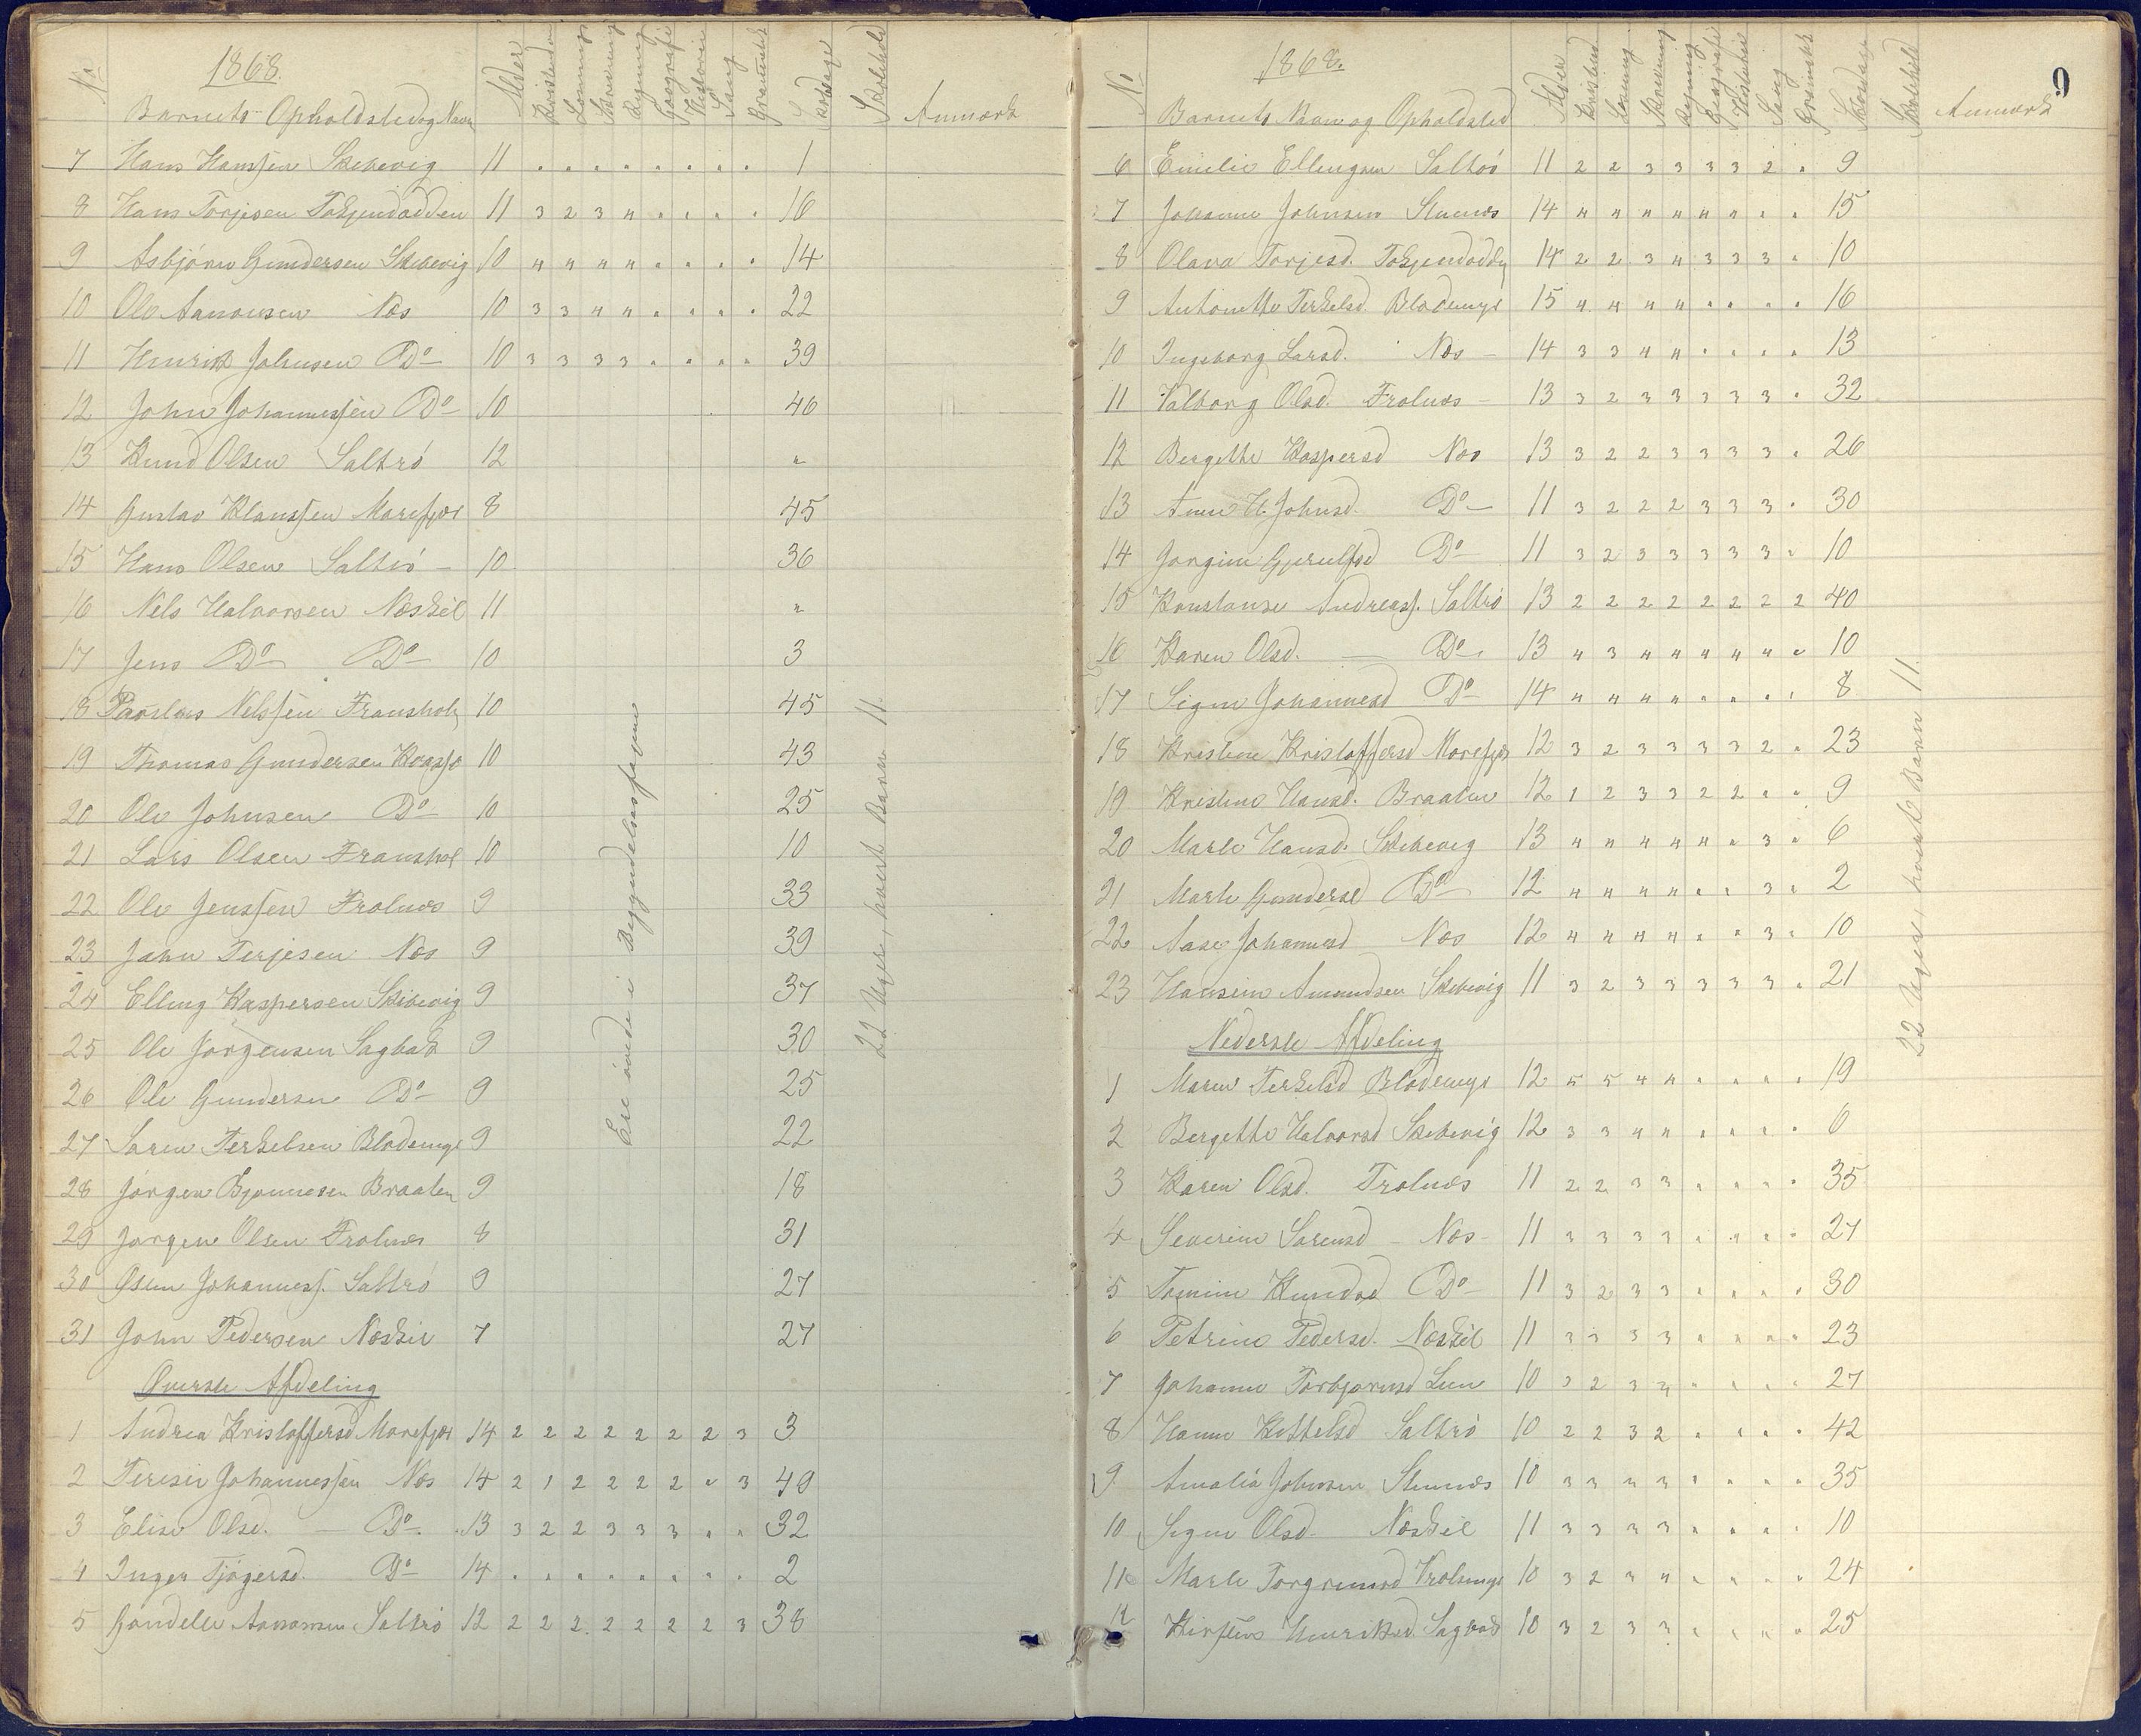 1868.
No Barnets Opholdsted og Navn Alder Kristendom Læsning Skrivning Regning Geografi Historie Sang Skoledage Anmærk
7 Hans Hansen Skibevig 11 " " " " " " " " 1
8 Hans Torjesen 11 3 2 3 4 " " " " 16
9 Asbjörn Gundersen Skibevig 10 4 4 4 4 " " " " 14
10 Ole Aanonsen Næs 10 3 3 4 4 " " " " 22
11 Henrik Johnsen Do 10 3 3 3 3 " " " " 39
12 John Johannessen Do 10 46
13 Knud Olsen Saltrö 12 "
14 Gustav Klaussen Morefjær 8 45
15 Hans Olsen Saltrö 10 36
16 Nils Halvorsen Næskil 11 "
17 Jens Do Do 10 3
18 Nilssen Fransholt 10 45
19 Thomas Gundersen 10 43
20 Ole Johnsen Do 10 25
21 Lars Olsen Franshol 10 10
22 Ole Jenssen Trolnæs 9 33
23 John Terjesen Næs 9 39
24 Elling Kaspersen Skibevig 9 37
25 Ole Jörgensen Sagbak 9 30
26 Ole Gundersen Do 9 25
27 Sören Terkelsen Blødemyr 9 22
28 Jörgen Bjonnesen Braaten 9 18
29 Jörgen Olsen Trolnæs 8 31
30 Johanness. Saltrö 9 27
31 John Pedersen Næskil 7 27
Ere övede i Begyndelsesfagene
22 Uger, hvert Barn 11
Överste Afdeling
1 Andrea Kristoffersd Morefjær 14 2 2 2 2 2 2 2 3 3
2 Teresie Johannessen Næs 14 2 1 2 2 2 2 " 3 49
3 Elise Olsd. Do 13 3 2 2 3 3 3 " " 32
4 Inger Tjögersd. Do 14 " " " " " " " " 2
5 Gundelle Aanonsen Saltrö 12 2 2 2 2 2 2 2 3 38
9
1868.
No Barnets Navn og Opholdsted Alder Kristend Læsning Skrivning Regning Geografi Historie Sang Skoledage Skoletid Anmærk
6 Emilie Ellingsen Saltrö 11 2 2 3 3 3 3 2 " 9
7 Johanne Johnsen Stuenæs 14 4 4 4 4 4 4 " " 15
8 Olava Torjesd. 14 2 2 3 4 3 3 3 " 10
9 Antonette Terkelsd. Blødemyr 15 4 4 4 4 " " " " 16
10 Ingeborg Larsd. Næs 14 3 3 4 4 " " " " 13
11 Valborg Olsd. Trolnæs 13 3 2 3 3 3 3 3 " 32
12 Bergitte Kaspersd Næs 13 3 2 2 3 3 3 3 " 26
13 Anne H. Johnsd. Do 11 3 2 2 2 3 3 3 " 30
14 Jorgine Gjerulfsd Do 11 3 2 3 3 3 3 3 " 10
15 Konstanse Andreass. Saltrö 13 2 2 2 2 2 2 2 2 40
16 Karen Olsd. Do 13 4 3 4 4 4 4 4 " 10
17 Signe Johannesd Do 14 4 4 4 4 " " " " 8
18 Kristine Kristoffersd Morefjær 12 3 2 3 3 3 3 2 " 23
19 Kristine Hansd. Braaten 12 1 2 3 3 2 2 " " 9
20 Marte Hansd. Skibevig 13 4 4 4 4 4 " 3 " 6
21 Marte Gundersd Do 12 4 4 4 4 " " 3 " 2
22 Aase Johannesd Næs 12 4 4 4 4 " " 3 " 10
23 Hansine Amundsen Skibevig 11 3 2 3 3 3 3 3 " 21
22 Uger, hvert Barn 11.
Nederste Afdeling
1 Maren Terkelsd Blødemyr 12 5 5 4 4 " " " " 19
2 Bergitte Halvorsd Skibevig 12 3 3 4 4 " " " " 6
3 Karen Olsd. Trolnæs 11 2 2 3 3 " " " " 35
4 Severine Sorensd Næs 11 3 3 3 3 " " " " 27
5 Tomine Knudsd Do 11 3 2 3 3 " " " " 30
6 Petrine Pedersd. Næskil 11 3 3 3 3 " " " " 23
7 Johanne Torbjornsd Lien 10 3 2 3 4 " " " " 27
8 Hanne Kittelsd Saltrö 10 2 2 3 2 " " " " 42
9 Amalia Johnsen Stuenæs 10 3 3 3 3 " " " " 35
10 Signe Olsd. Næskil 11 3 3 3 3 " " " " 10
11 Marte Torgrimsd 10 3 2 3 4 " " " " 24
12 Kirstine Henriksd. Sagbak 10 3 2 3 3 " " " " 25